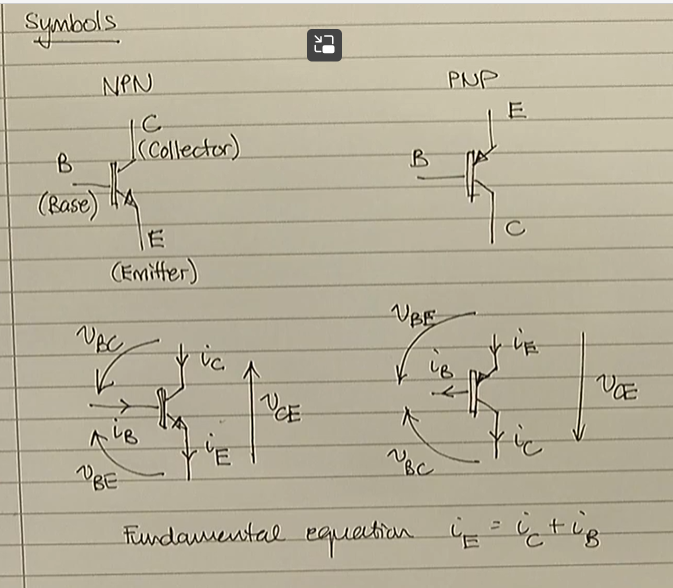 Symbols
NPN
PNP
C
(Collector)
B
(Base)
E
(Emitter)
E
B
C
v_BC
i_C
v_CE
i_B
i_E
v_BE
v_BE
i_E
i_B
v_CE
i_C
v_BC
Fundamental equation i_E = i_C + i_B